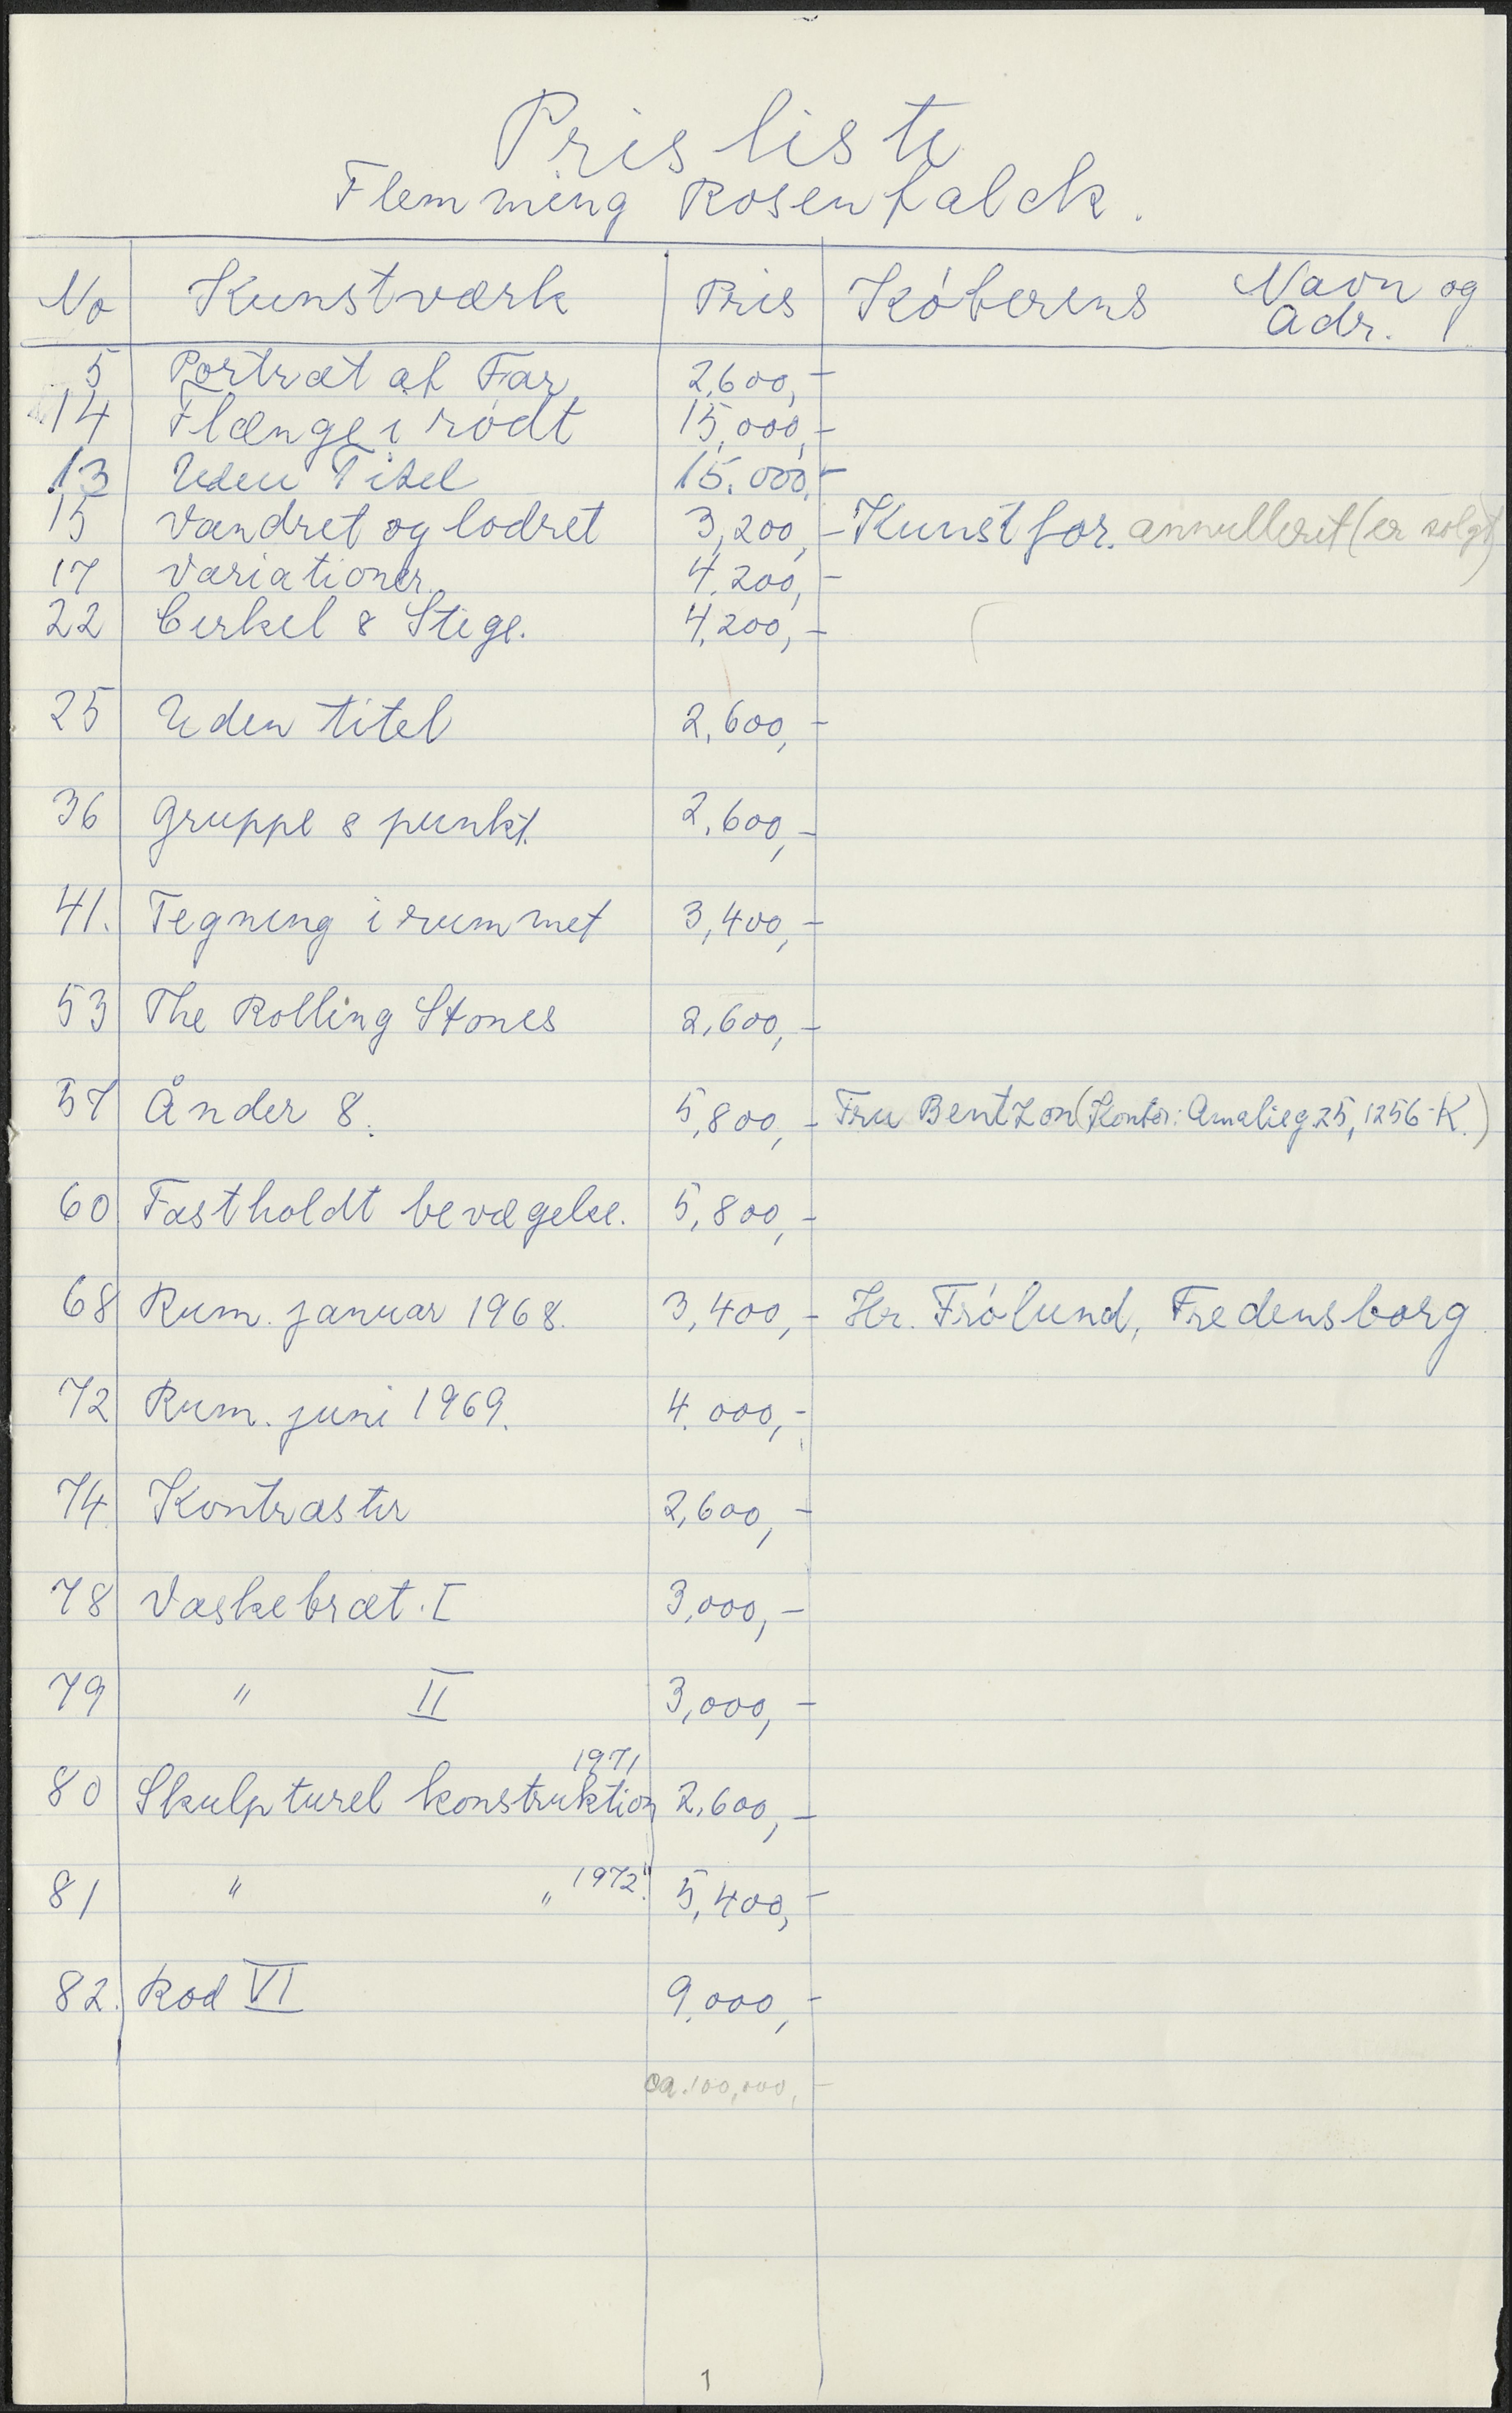 Prisliste
Flemming Rosenfalck.
No Kunstværk Pris Køberens Navn og
Adr.
5 Portræt af Far 2,600,-
14 Flænge i rødt 15,000,-
13 Uden Titel 15.000,-
15 Vandret og lodret 3,200,- Kunstfor. annulleret (er solgt)
17 Variationer. 4.200,-
22 Cirkel & Stige. 4,200,-
25 Uden titel 2,600,-
36 Gruppe & punkt. 2,600,-
41. Tegning i rummet 3,400,-
53 The Rolling Stones 2,600,-
57 Ånder 8. 5,800,- Fru Bentzon (Kontor: Amalieg. 25, 1256-K.)
60 Fastholdt bevægelse. 5,800,-
68 Rum. januar 1968. 3,400,- Hr. Frølund, Fredensborg
72 Rum. juni 1969. 4.000,-
74 Kontraster 2,600,-
78 Vaskebræt. I 3,000,-
79 " II 3,000,-
1971
80 Skulpturel konstruktion 2,600,-
81 " " 1972". 5,400,-
82. Rød VI 9.000,-
ca. 100,000,-
1